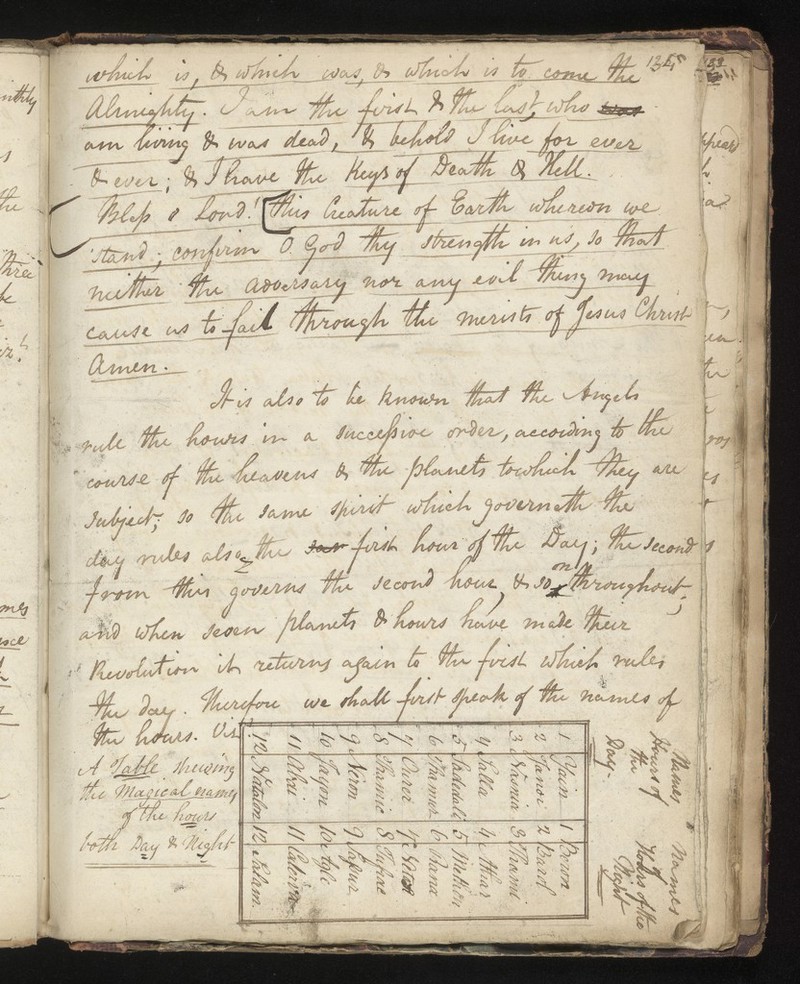 135
which is, & which was, & which is to come the
Almighty. I am the first & the last, who was
am living & was dead, & behold I live for ever
& ever; & I have the Keys of Death & Hell.
Bless o Lord! [this Creature of Earth whereon we
stand; confirm O God thy strength in us, so that
neither the adversary nor any evil thing may
cause us to fail through the merists of Jesus Christ
Amen.
It is also to be known that the Angels
rule the hours in a successive order, according to the
course of the heavens & the planets to which they are
subject; so the same spirit which governeth the
day rules also the first hour of the Day; the second
from this governs the second hour, & so on throughout;
and when seven planets & hours have made their
Revolution it returns again to the first which rules
the day. Therefore we shall first speak of the names of
the hours. Viz
A Table shewing
the Magical names
of the hours
both Day & Night
Names Hours of the Day.
Names Hours of the Night
1 Yain 1 Beron
2 Janor 2 Barol
3 Nasnia 3 Thami
4 Salla 4 Athar
5 Sadedali 5 Methon
6 Thamur 6 Rana
7 Ourer 7
8 Thamic 8 Tafrac
9 Neron 9 Sassur
10 Jayon 10 Agle
11 Abai 11 Calerva
12 Natalon 12 Salam.